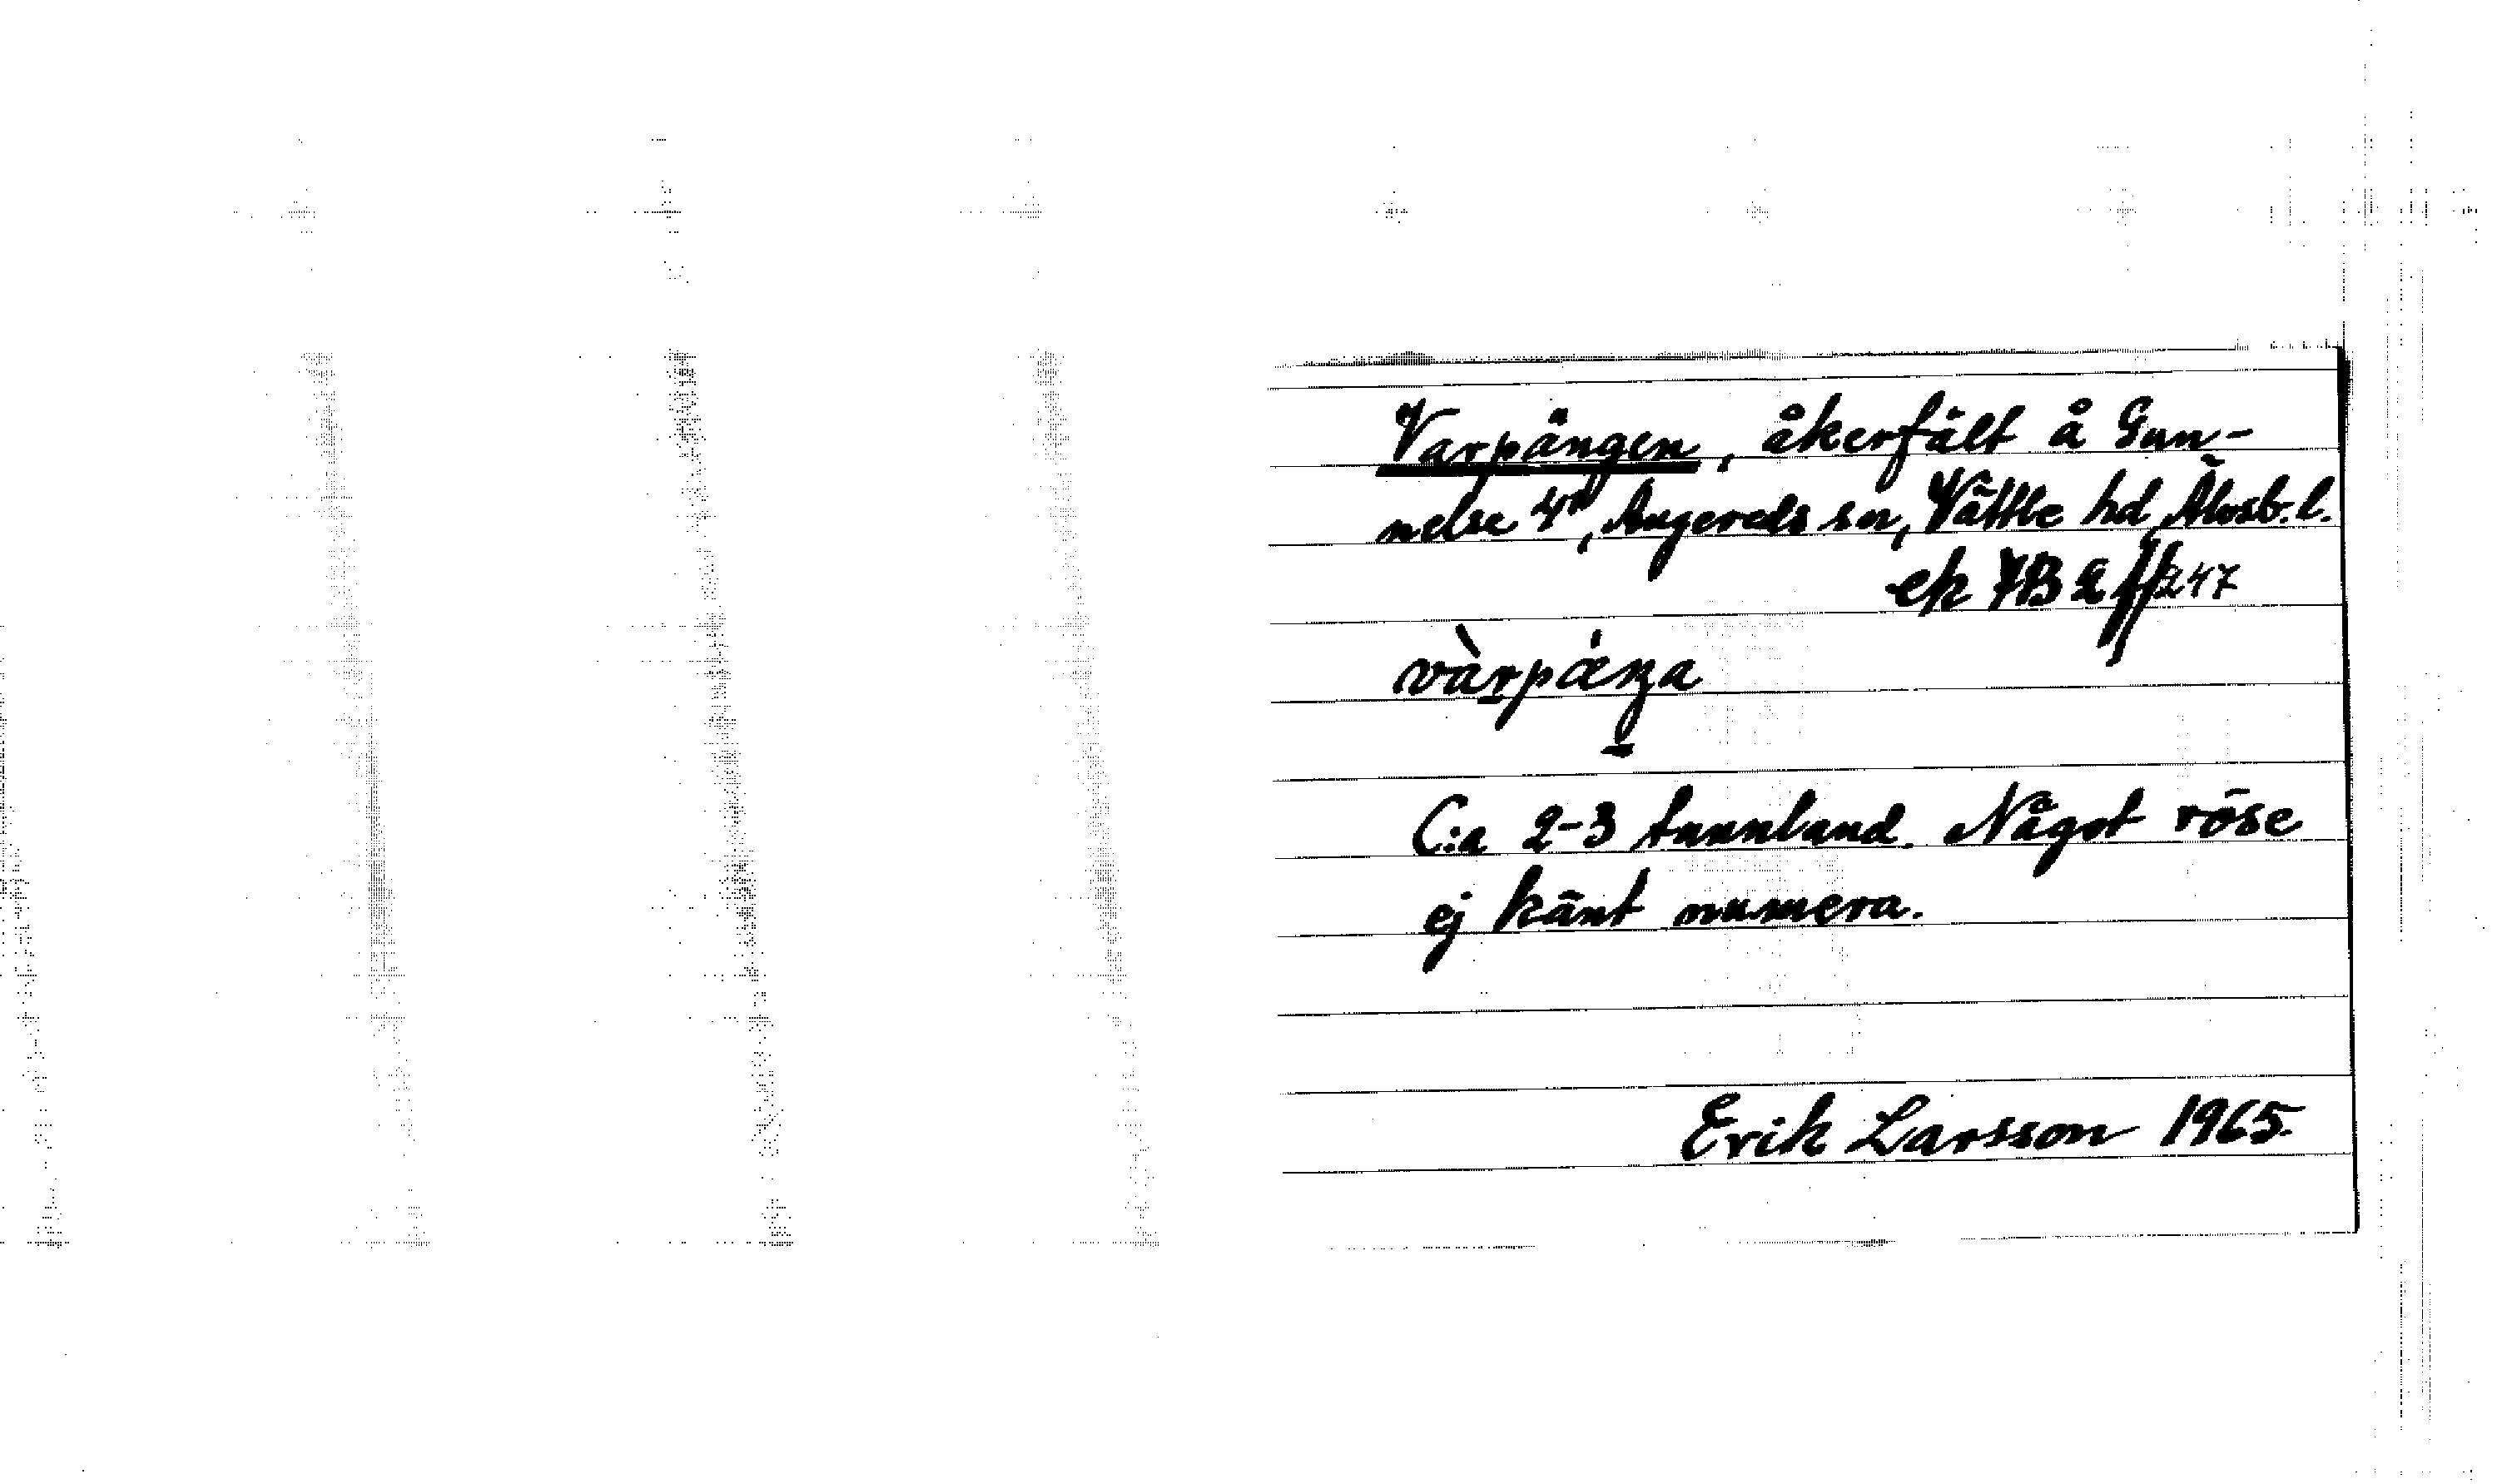 Varpängen, åkerfält å Gun-
nelse 4ⁿ, Angereds sn, Vättle hd, Älvsb. l.
ek 7B 2 f/247
vàrpä́ŋa
C:a 2-3 tunnland. Något röse
ej känt numera.
Erik Larsson 1965.